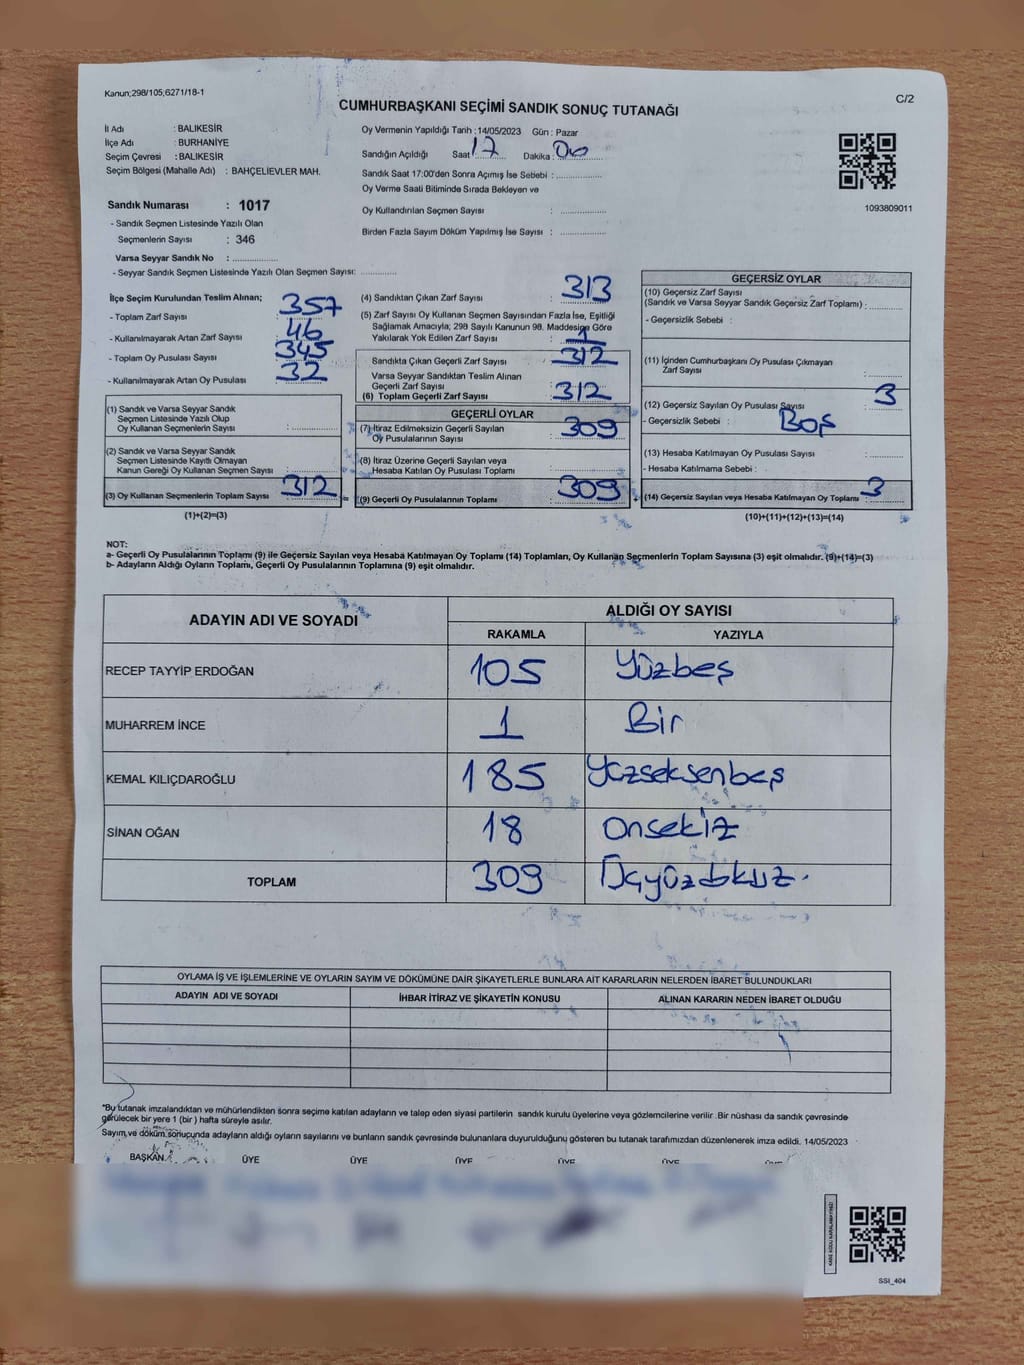 Kanun;298/105;6271/18-1
C/2
CUMHURBAŞKANI SEÇİMİ SANDIK SONUÇ TUTANAĞI
İl Adı : BALIKESİR
İlçe Adı : BURHANİYE
Seçim Çevresi : BALIKESİR
Seçim Bölgesi (Mahalle Adı) : BAHÇELİEVLER MAH.
Sandık Numarası : 1017
- Sandık Seçmen Listesinde Yazılı Olan
Seçmenlerin Sayısı : 346
Varsa Seyyar Sandık No : ..................
- Seyyar Sandık Seçmen Listesinde Yazılı Olan Seçmen Sayısı: ..............
Oy Vermenin Yapıldığı Tarih : 14/05/2023 Gün : Pazar
Sandığın Açıldığı Saat 17 Dakika : 00
Sandık Saat 17:00'den Sonra Açımış İse Sebebi : ..................
Oy Verme Saati Bitiminde Sırada Bekleyen ve
Oy Kullandırılan Seçmen Sayısı : ..................
Birden Fazla Sayım Döküm Yapılmış İse Sayısı : ..................
1093809011
İlçe Seçim Kurulundan Teslim Alınan;
- Toplam Zarf Sayısı 357
- Kullanılmayarak Artan Zarf Sayısı 46
- Toplam Oy Pusulası Sayısı 345
- Kullanılmayarak Artan Oy Pusulası 32
(1) Sandık ve Varsa Seyyar Sandık
Seçmen Listesinde Yazılı Olup
Oy Kullanan Seçmenlerin Sayısı : ..............
(2) Sandık ve Varsa Seyyar Sandık
Seçmen Listesinde Kayıtlı Olmayan
Kanun Gereği Oy Kullanan Seçmen Sayısı : ..............
(3) Oy Kullanan Seçmenlerin Toplam Sayısı 312
(1)+(2)=(3)
(4) Sandıktan Çıkan Zarf Sayısı : 313
(5) Zarf Sayısı Oy Kullanan Seçmen Sayısından Fazla İse, Eşitliği
Sağlamak Amacıyla; 298 Sayılı Kanunun 98. Maddesine Göre
Yakılarak Yok Edilen Zarf Sayısı : 1
Sandıkta Çıkan Geçerli Zarf Sayısı : 312
Varsa Seyyar Sandıktan Teslim Alınan
Geçerli Zarf Sayısı
(6) Toplam Geçerli Zarf Sayısı : 312
GEÇERLİ OYLAR
(7) İtiraz Edilmeksizin Geçerli Sayılan
Oy Pusulalarının Sayısı : 309
(8) İtiraz Üzerine Geçerli Sayılan veya
Hesaba Katılan Oy Pusulası Toplamı : ..............
= (9) Geçerli Oy Pusulalarının Toplamı : 309
GEÇERSİZ OYLAR
(10) Geçersiz Zarf Sayısı
(Sandık ve Varsa Seyyar Sandık Geçersiz Zarf Toplamı) : ..........
- Geçersizlik Sebebi :
(11) İçinden Cumhurbaşkanı Oy Pusulası Çıkmayan
Zarf Sayısı : ..........
(12) Geçersiz Sayılan Oy Pusulası Sayısı : 3
- Geçersizlik Sebebi : Boş
(13) Hesaba Katılmayan Oy Pusulası Sayısı : ..........
- Hesaba Katılmama Sebebi :
+ (14) Geçersiz Sayılan veya Hesaba Katılmayan Oy Toplamı : 3
(10)+(11)+(12)+(13)=(14)
NOT:
a- Geçerli Oy Pusulalarının Toplamı (9) ile Geçersiz Sayılan veya Hesaba Katılmayan Oy Toplamı (14) Toplamları, Oy Kullanan Seçmenlerin Toplam Sayısına (3) eşit olmalıdır. (9)+(14)=(3)
b- Adayların Aldığı Oyların Toplamı, Geçerli Oy Pusulalarının Toplamına (9) eşit olmalıdır.
ADAYIN ADI VE SOYADI
ALDIĞI OY SAYISI
RAKAMLA YAZIYLA
RECEP TAYYİP ERDOĞAN 105 Yüzbeş
MUHARREM İNCE 1 Bir
KEMAL KILIÇDAROĞLU 185 Yüzseksenbeş
SİNAN OĞAN 18 Onsekiz
TOPLAM 309 Üçyüzdokuz.
OYLAMA İŞ VE İŞLEMLERİNE VE OYLARIN SAYIM VE DÖKÜMÜNE DAİR ŞİKAYETLERLE BUNLARA AİT KARARLARIN NELERDEN İBARET BULUNDUKLARI
ADAYIN ADI VE SOYADI İHBAR İTİRAZ VE ŞİKAYETİN KONUSU ALINAN KARARIN NEDEN İBARET OLDUĞU
*Bu tutanak imzalandıktan ve mühürlendikten sonra seçime katılan adayların ve talep eden siyasi partilerin sandık kurulu üyelerine veya gözlemcilerine verilir .Bir nüshası da sandık çevresinde
görülecek bir yere 1 (bir ) hafta süreyle asılır.
Sayım ve döküm sonucunda adayların aldığı oyların sayılarını ve bunların sandık çevresinde bulunanlara duyurulduğunu gösteren bu tutanak tarafımızdan düzenlenerek imza edildi. 14/05/2023
BAŞKAN ÜYE ÜYE ÜYE ÜYE ÜYE
KARE KODU KARALAMAYINIZ!
SSI_404